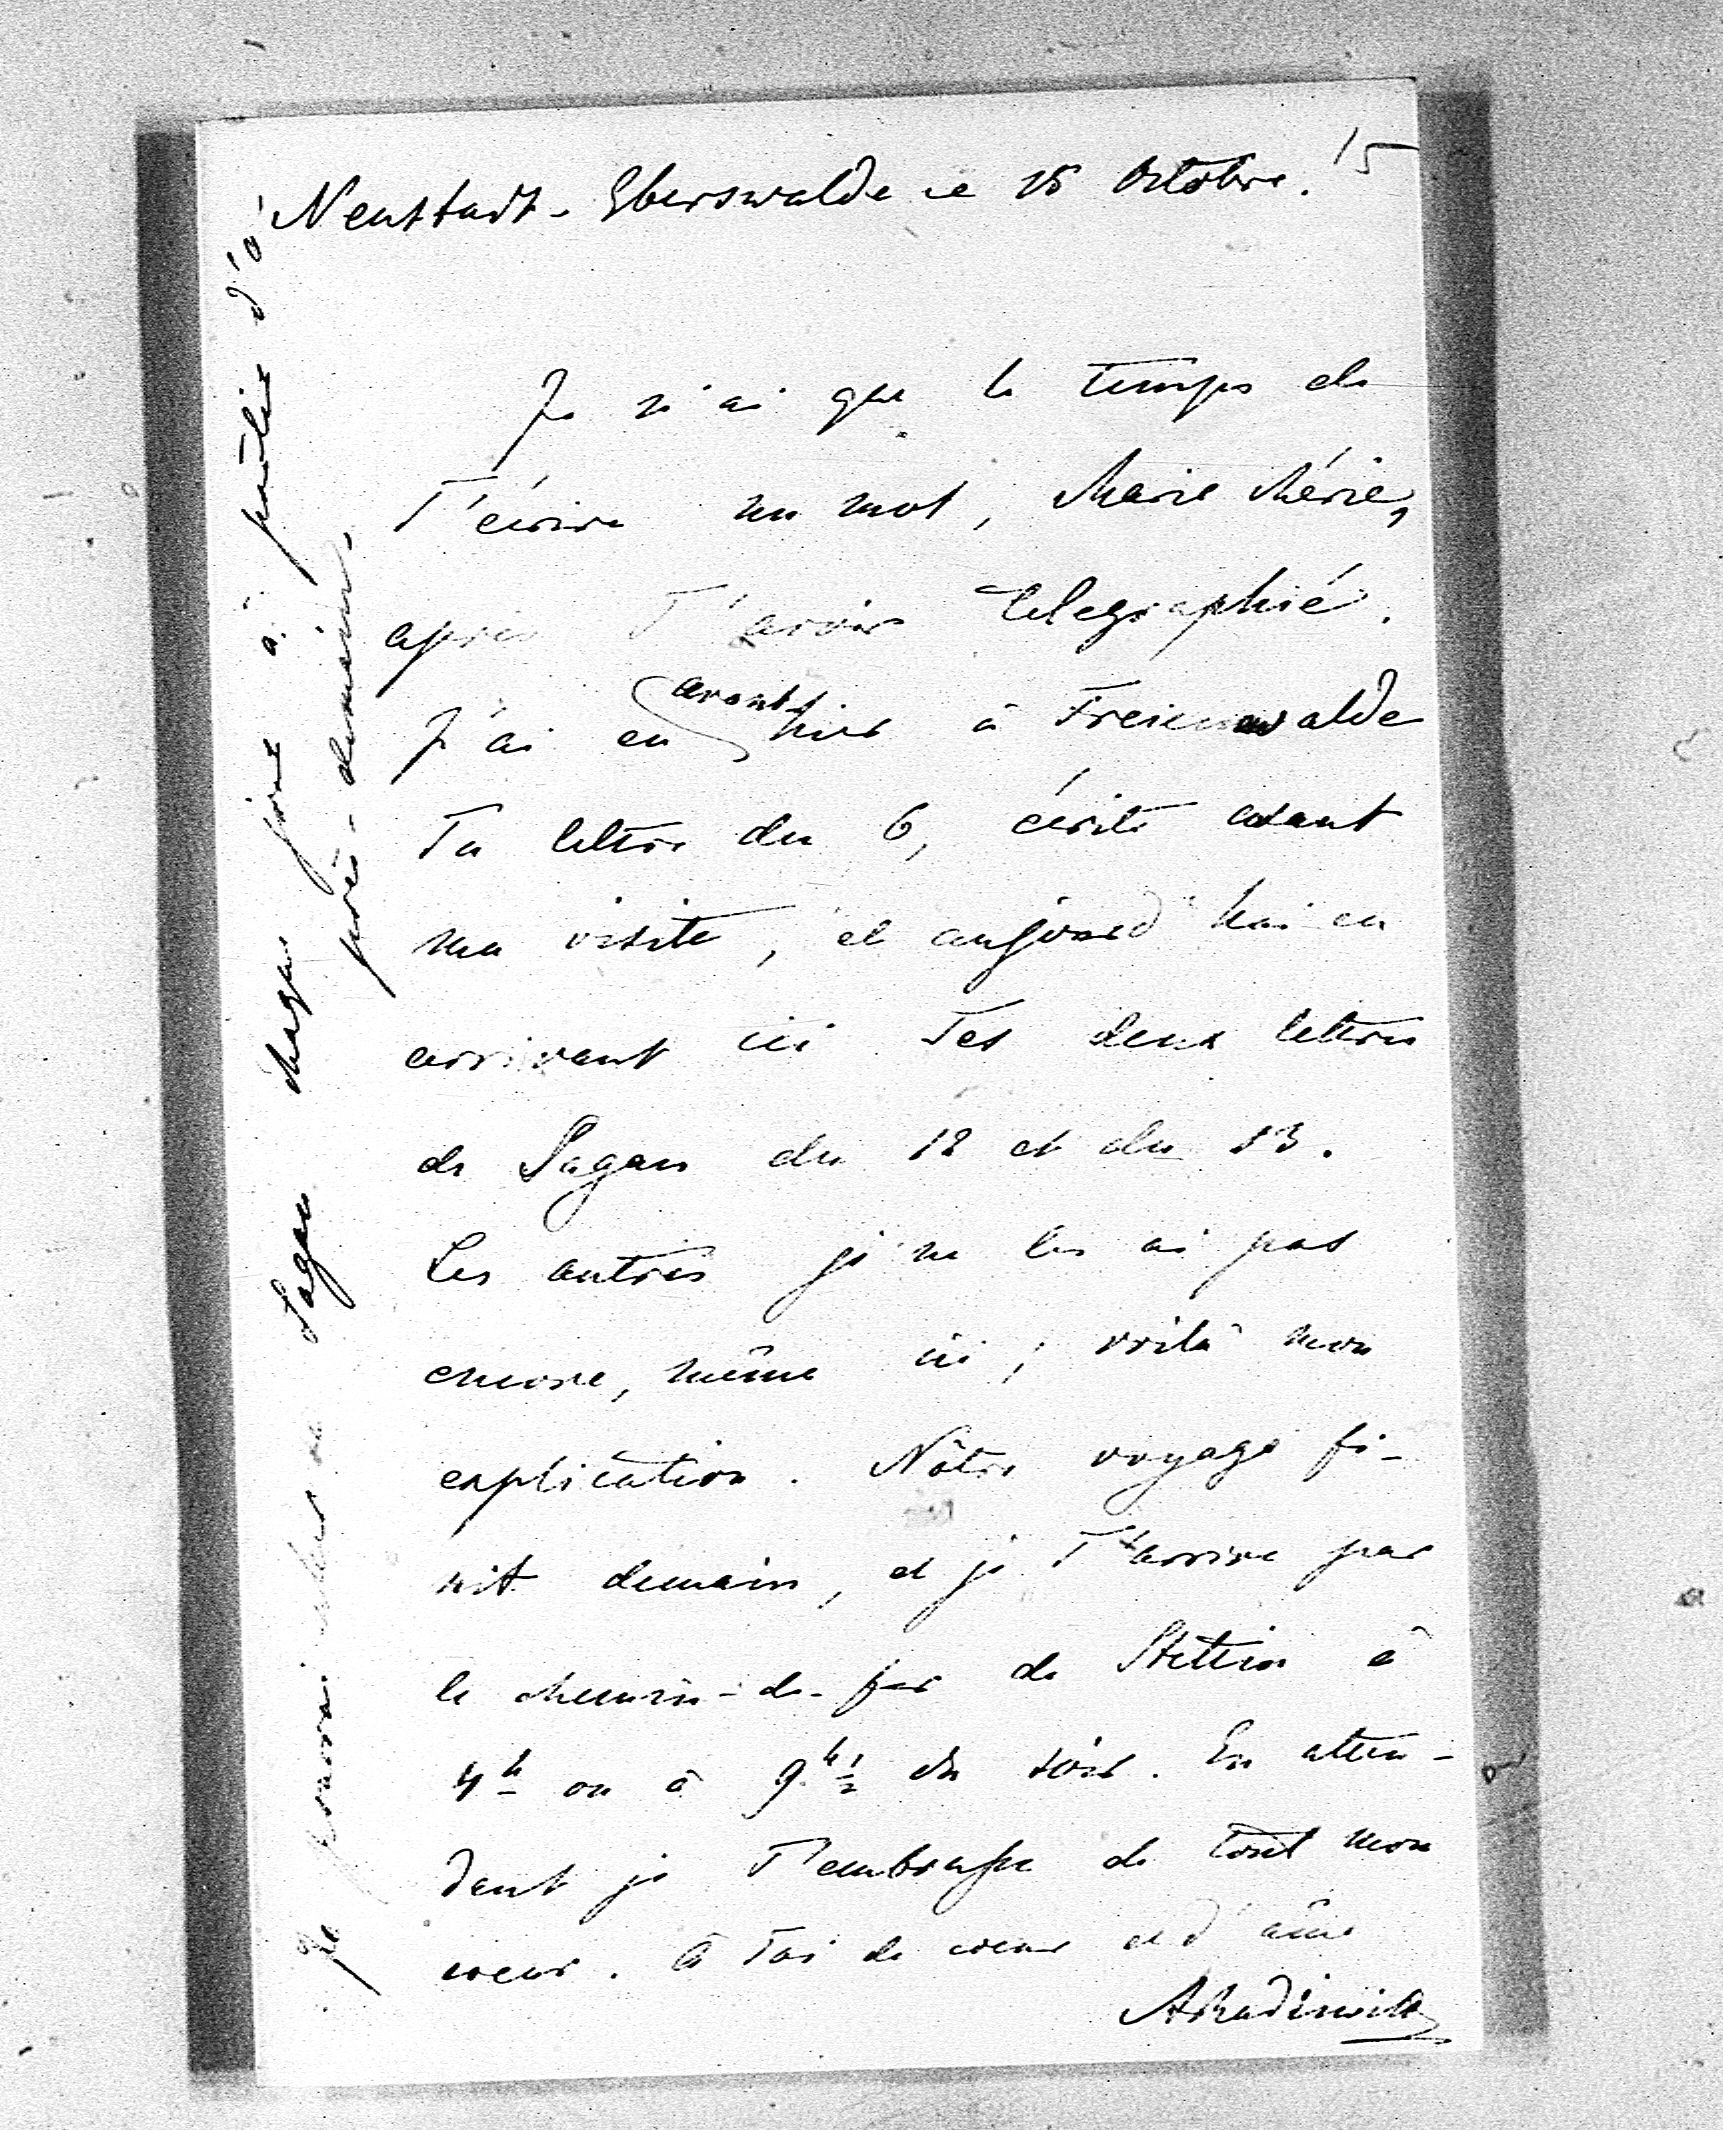 15
Neustadt-Eberswalde ce 15 Octobre.
Je n'ai que le temps de
T'écrire un mot, Marie chérie,
après T'avoir telegraphié.
J'ai eu avant hier à Freienwalde
Ta lettre du 6, écrite avant
ma visite, et aujourd'hui en
arrivant ici Tes deux lettres
de Sagan du 12 et du 13.
Les autres je ne les ai pas
encore, même ici; voilà mon
explication. Nôtre voyage fi-
nit demain, et je T'arrive par
le chemin-de-fer de Stettin à
4h ou à 9h½ du soir. En atten-
dant je T'embrasse de tout mon
coeur. à Toi de coeur et d'âme
ARadziwill
Je pourrai rester à Sagan chaque jour à partir d'a-
près-demain.